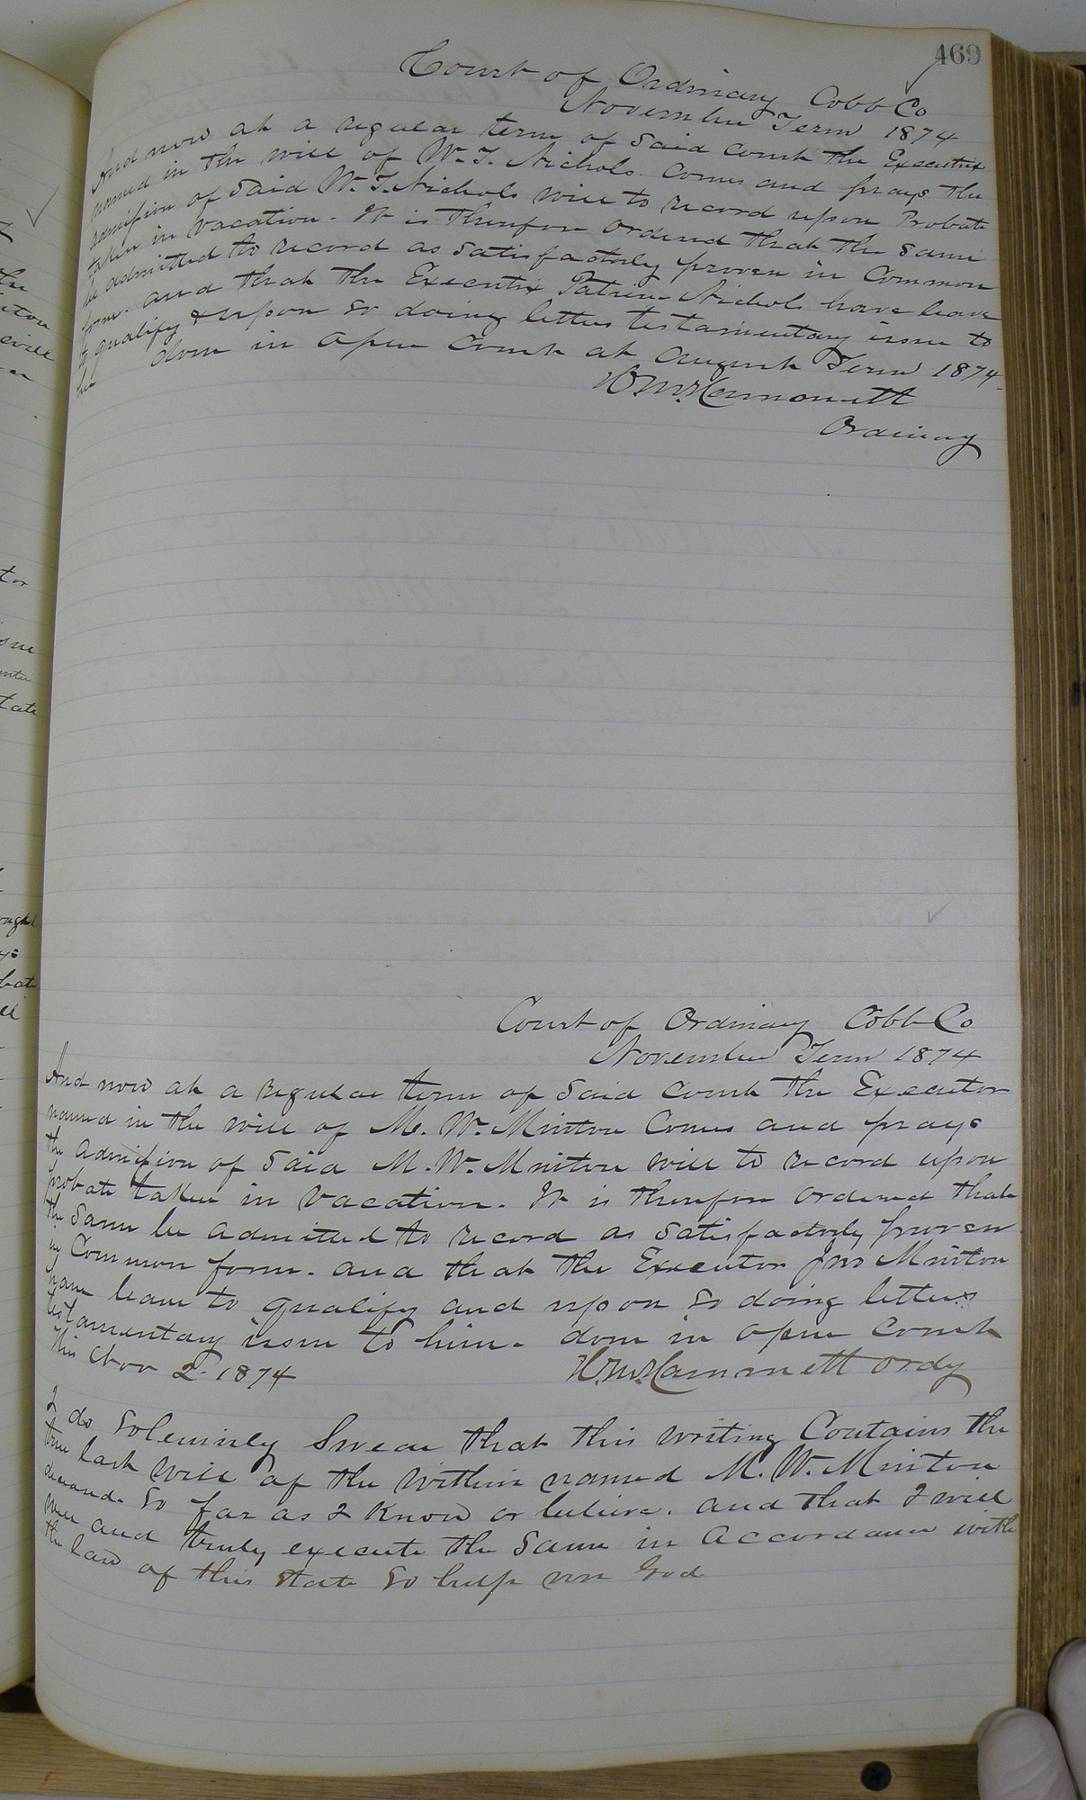 469
Court of Ordinary Cobb Co
November Term 1874
And now at a regular term of Said Court the Executrix
named in the will of W. T. Nichols Comes and prays the
admission of Said W. T. Nichols will to record upon Probate
taken in vacation. It is therefore ordered that the same
be admitted to record as satisfactorily proven in Common
form. and that the Executrix Nichols have leave
to qualify & upon so doing letters testamentary issue to
her done in open Court at August Term 1874
Hammett
Ordinary
Court of Ordinary Cobb Co
November Term 1874
And now at a regular term of Said Court the Executor
named in the will of M. W. Minton Comes and prays
the admission of Said M. W. Minton will to record upon
probate taken in Vacation. It is therefore ordered that
the Same be admitted to record as Satisfactorily proven
in Common form. and that the Executor Jno Minton
have leave to qualify and upon so doing letters
testamentary issue to him. done in open Court
This Nov 2. 1874
Hammett ordy
I do Solemnly Swear that this writing Contains the
true last will of the within named M. W. Minton
deceased. So far as I Know or believe. and that I will
well and truly execute the Same in accordance with
the law of this State So help me God
the
will
tor
issue
tate